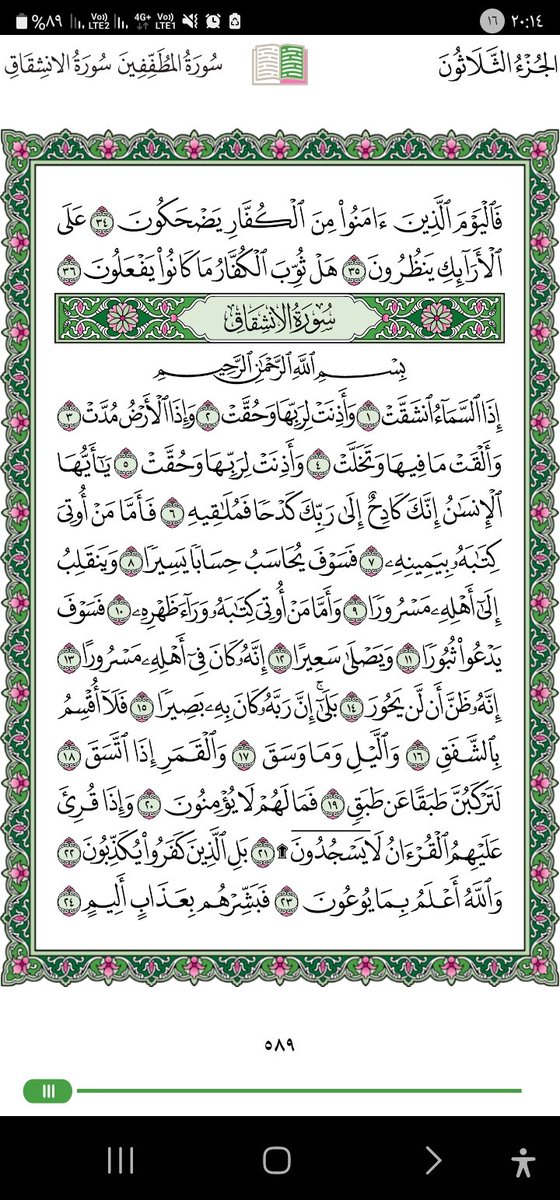 ٢٠:١٤ ١٦ Vo)) LTE1 4G+ Vo)) LTE2 %٨٩
الجُزْءُ الثَّلَاثُونَ سُورَةُ المُطَفِّفِينَ سُورَةُ الانشِقَاقِ
فَٱلۡيَوۡمَ ٱلَّذِينَ ءَامَنُواْ مِنَ ٱلۡكُفَّارِ يَضۡحَكُونَ ٣٤ عَلَى
ٱلۡأَرَآئِكِ يَنظُرُونَ ٣٥ هَلۡ ثُوِّبَ ٱلۡكُفَّارُ مَا كَانُواْ يَفۡعَلُونَ ٣٦
سُورَةُ الانشِقَاقِ
بِسۡمِ ٱللَّهِ ٱلرَّحۡمَٰنِ ٱلرَّحِيمِ
إِذَا ٱلسَّمَآءُ ٱنشَقَّتۡ ١ وَأَذِنَتۡ لِرَبِّهَا وَحُقَّتۡ ٢ وَإِذَا ٱلۡأَرۡضُ مُدَّتۡ ٣
وَأَلۡقَتۡ مَا فِيهَا وَتَخَلَّتۡ ٤ وَأَذِنَتۡ لِرَبِّهَا وَحُقَّتۡ ٥ يَٰٓأَيُّهَا
ٱلۡإِنسَٰنُ إِنَّكَ كَادِحٌ إِلَىٰ رَبِّكَ كَدۡحٗا فَمُلَٰقِيهِ ٦ فَأَمَّا مَنۡ أُوتِيَ
كِتَٰبَهُۥ بِيَمِينِهِۦ ٧ فَسَوۡفَ يُحَاسَبُ حِسَابٗا يَسِيرٗا ٨ وَيَنقَلِبُ
إِلَىٰٓ أَهۡلِهِۦ مَسۡرُورٗا ٩ وَأَمَّا مَنۡ أُوتِيَ كِتَٰبَهُۥ وَرَآءَ ظَهۡرِهِۦ ١٠ فَسَوۡفَ
يَدۡعُواْ ثُبُورٗا ١١ وَيَصۡلَىٰ سَعِيرًا ١٢ إِنَّهُۥ كَانَ فِيٓ أَهۡلِهِۦ مَسۡرُورًا ١٣
إِنَّهُۥ ظَنَّ أَن لَّن يَحُورَ ١٤ بَلَىٰٓۚ إِنَّ رَبَّهُۥ كَانَ بِهِۦ بَصِيرٗا ١٥ فَلَآ أُقۡسِمُ
بِٱلشَّفَقِ ١٦ وَٱلَّيۡلِ وَمَا وَسَقَ ١٧ وَٱلۡقَمَرِ إِذَا ٱتَّسَقَ ١٨
لَتَرۡكَبُنَّ طَبَقًا عَن طَبَقٖ ١٩ فَمَا لَهُمۡ لَا يُؤۡمِنُونَ ٢٠ وَإِذَا قُرِئَ
عَلَيۡهِمُ ٱلۡقُرۡءَانُ لَا يَسۡجُدُونَۤ ۩ ٢١ بَلِ ٱلَّذِينَ كَفَرُواْ يُكَذِّبُونَ ٢٢
وَٱللَّهُ أَعۡلَمُ بِمَا يُوعُونَ ٢٣ فَبَشِّرۡهُم بِعَذَابٍ أَلِيمٍ ٢٤
٥٨٩